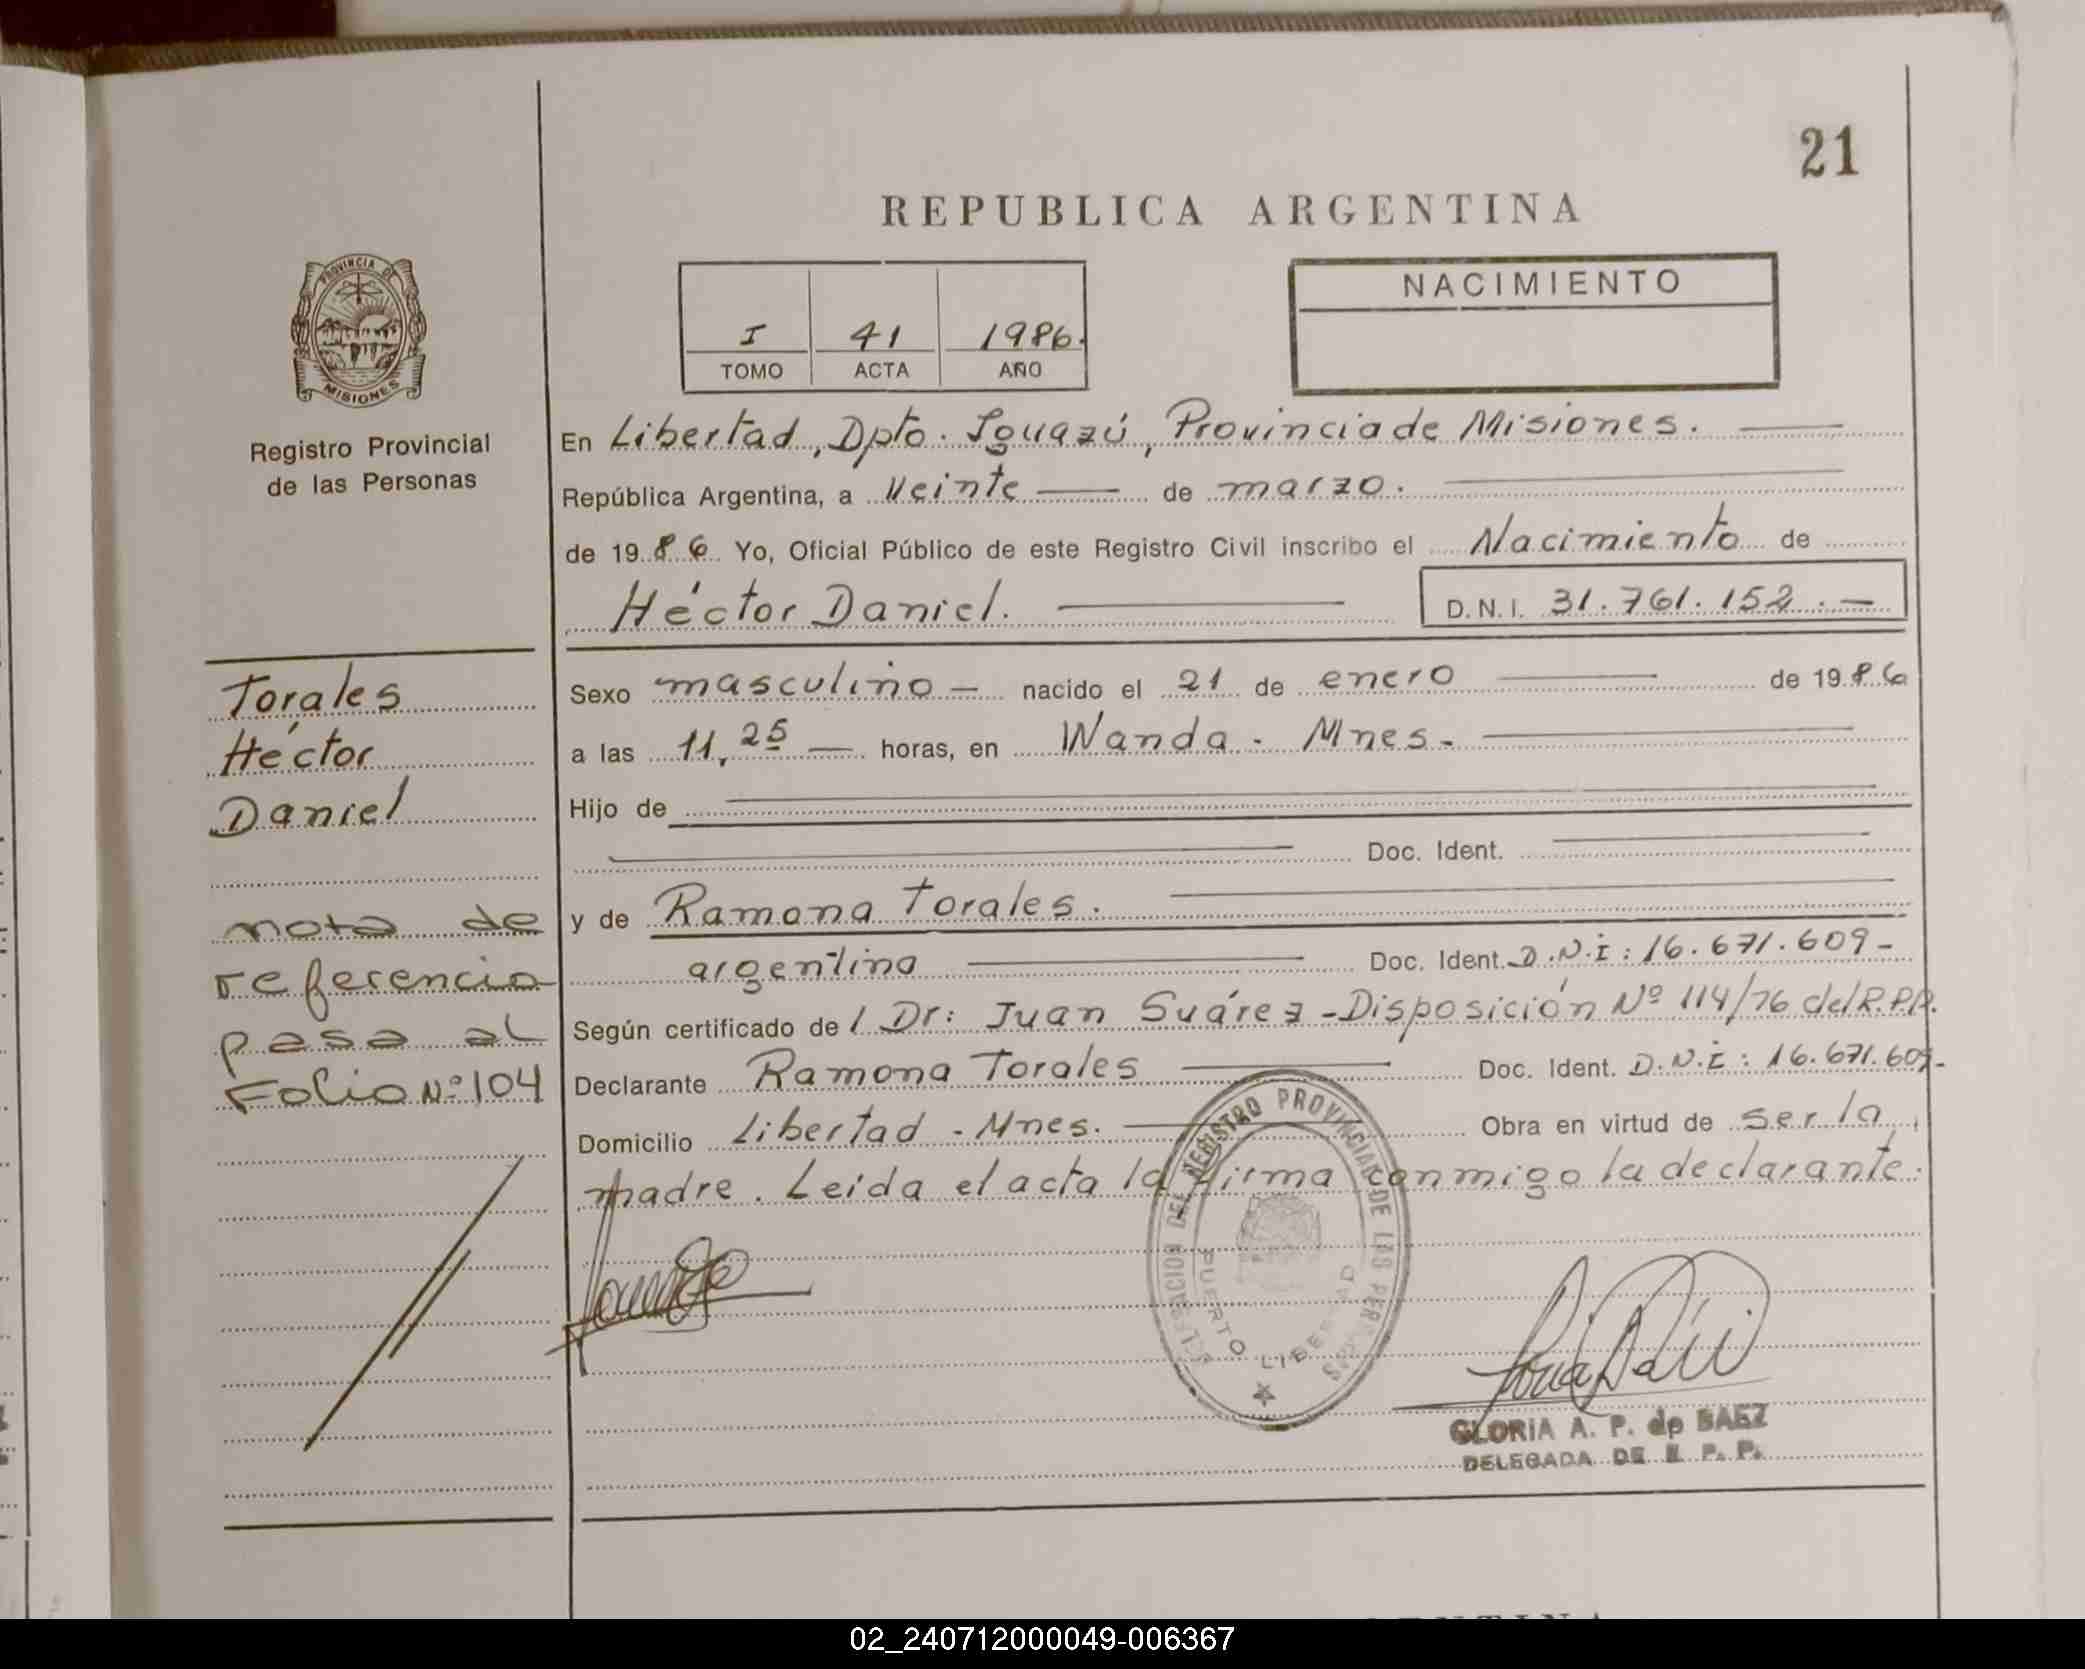 21
REPUBLICA ARGENTINA
PROVINCIA DE
MISIONES
Registro Provincial
de las Personas
I 41 1986.
TOMO ACTA AÑO
NACIMIENTO
En Libertad, Dpto. Iguazú, Provincia de Misiones.
República Argentina, a Veinte de marzo.
de 1986 Yo, Oficial Público de este Registro Civil inscribo el Nacimiento de
Héctor Daniel.
D.N.I. 31.761.152.-
Torales
Héctor
Daniel
nota de
referencia
pasa al
Folio Nº 104
Sexo masculino - nacido el 21 de enero de 1986
a las 11,25 horas, en Wanda - Mnes-
Hijo de
Doc. Ident.
y de Ramona Torales.
argentina Doc. Ident. D.N.I: 16.671.609-
Según certificado de / Dr: Juan Suárez - Disposición Nº 114/76 del R.P.P.
Declarante Ramona Torales Doc. Ident. D.N.I: 16.671.609-
Domicilio Libertad - Mnes. Obra en virtud de ser la
madre. Leida el acta la firma conmigo la declarante.
DELEGACION DEL REGISTRO PROVINCIAL DE LAS PERSONAS
PUERTO LIBERTAD
GLORIA A. P. de BAEZ
DELEGADA DE R. P. P.
02_240712000049-006367